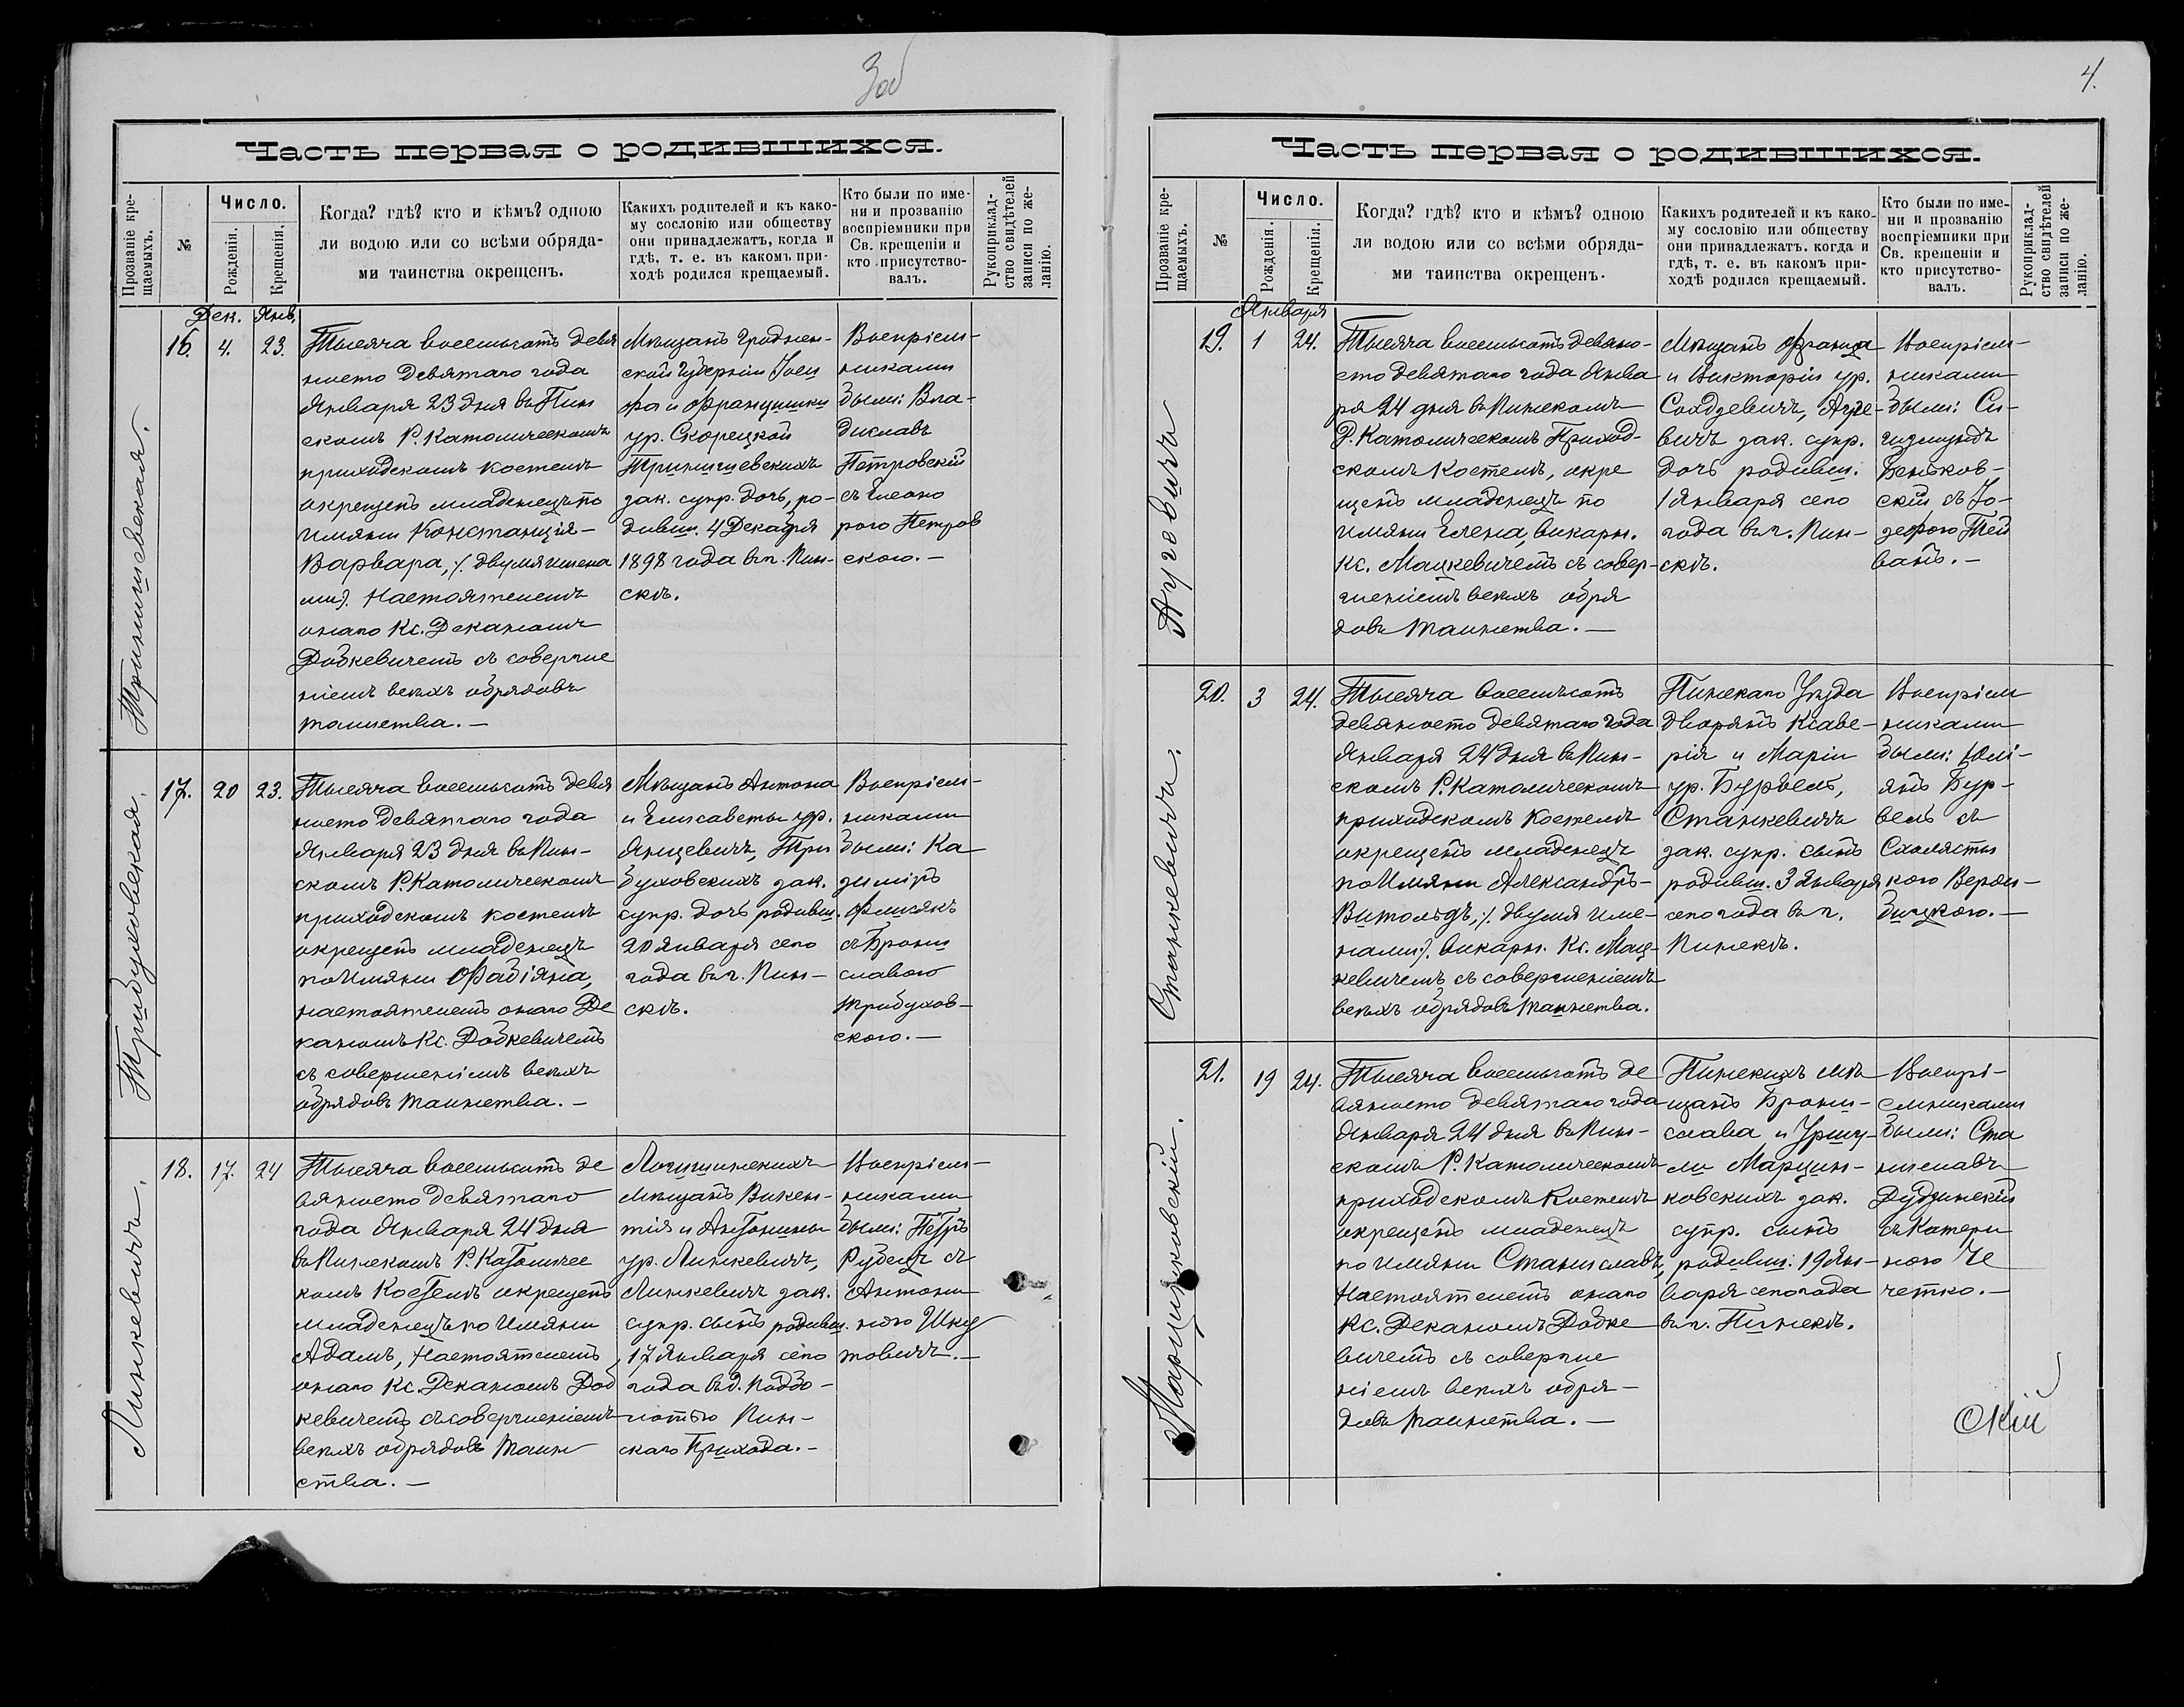 3об
Часть первая о родившихся.
Прозваніе кре-
щаемыхъ.
№
Число.
Рожденія.
Крещенія.
Когда? гдѣ? кто и кѣмъ? одною
ли водою или со всѣми обряда-
ми таинства окрещенъ.
Какихъ родителей и къ како-
му сословію или обществу
они принадлежатъ, когда и
гдѣ, т. е. въ какомъ при-
ходѣ родился крещаемый.
Кто были по име-
ни и прозванію
воспріемники при
Св. крещеніи и
кто присутство-
валъ.
Рукоприклад-
ство свидѣтелей
записи по же-
ланію.
Дек. Янв.
16. 4. 23.
Тысяча восемьсотъ девя
носто девятаго года
Января 23 дня въ Пин
скомъ Р. Католическомъ
приходскомъ костелѣ
окрещенъ младенецъ по
имяни Констанція-
Варвара, /. двумя имена
ми). Настоятелемъ
онаго Кс. Деканомъ
Добкевичемъ съ соверше
ніемъ всѣхъ обрядовъ
таинства. —
Мѣщанъ Гроднен-
ской Губерніи Іоси
фа и Францишки
ур. Скорецкой
зак. супр. дочь, ро-
дивш. 4 Декабря
1898 года въ г. Пин-
скѣ.
Воспріем-
никами
были: Вла-
диславъ
Петровскій
съ Элеоно
рою Петров
скою. —
Трибуховская.
17. 20 23.
Тысяча восемьсотъ девя
носто девятаго года
Января 23 дня въ Пин-
скомъ Р. Католическомъ
приходскомъ костелѣ
окрещенъ младенецъ
по имяни Фабіяна,
настоятелемъ онаго Де
каномъ Кс. Добкевичемъ
съ совершеніемъ всѣхъ
обрядовъ таинства. —
Мѣщанъ Антона
и Елисаветы ур.
Янцевичъ, Три
буховскихъ зак.
супр. дочь родивш.
20 Января сего
года въ г. Пин-
скѣ.
Воспріем-
никами
были: Ка
зиміръ
Флисякъ
съ Брони
славою
Трибухов-
скою. —
Линкевичъ.
18. 17. 24
Тысяча восемьсотъ де
вяносто девятаго
года Января 24 дня
въ Пинскомъ Р. Католичес
комъ Костелѣ окрещенъ
младенецъ по имяни
Адамъ, Настоятелемъ
онаго Кс. Деканомъ Доб
кевичемъ съ совершеніемъ
всѣхъ обрядовъ таин
ства. —
Логишинскихъ
мѣщанъ Викен-
тія и Антонины
ур. Линкевичъ,
Линкевичъ зак.
супр. сынъ родивш.
17 Января сего
года въ д. Поддо-
Пин-
скаго Прихода. —
Воспріем-
никами
были: Петръ
Рубецъ съ
Антони
ною Шку
товичъ. —
4.
Часть первая о родившихся.
Прозваніе кре-
щаемыхъ.
№
Число.
Рожденія.
Крещенія.
Когда? гдѣ? кто и кѣмъ? одною
ли водою или со всѣми обряда-
ми таинства окрещенъ.
Какихъ родителей и къ како-
му сословію или обществу
они принадлежатъ. когда и
гдѣ, т. е. въ какомъ при-
ходѣ родился крещаемый.
Кто были по име-
ни и прозванію
воспріемники при
Св. крещеніи и
кто присутство-
валъ.
Рукоприклад-
ство свидѣтелей
записи по же-
ланію.
Января
19. 1 24.
Тысяча восемьсотъ девяно-
сто девятаго года Янва
ря 24 дня въ Пинскомъ
Р. Католическомъ Приход-
скомъ Костелѣ, окре
щенъ младенецъ по
имяни Елена, викарн.
Кс. Мацкевичемъ съ совер-
шеніемъ всѣхъ обря
довъ таинства. —
Мѣщанъ Франца
и Викторіи ур.
вичъ зак. супр.
дочь родивш.
1 Января сего
года въ г. Пин-
скѣ.
Воспріем-
никами
были: Си-
гизмундъ
Беньков-
скій съ Іо-
зефою
Станкевичъ.
20. 3 24.
Тысяча восемьсотъ
девяносто девятаго года
Января 24 дня въ Пин-
скомъ Р. Католическомъ
приходскомъ Костелѣ
окрещенъ младенецъ
по имяни Александръ-
Витольдъ, /. двумя име-
нами). викарн. Кс. Мац-
кевичемъ съ совершеніемъ
всѣхъ обрядовъ таинства.
Пинскаго Уѣзда
дворянъ Ксаве-
рія и Маріи
ур. Бурвель,
Станкевичъ
зак. супр. сынъ
родивш. 3 Января
сего года въ г.
Пинскѣ.
Воспріем
никами
были: Юлі-
янъ Бур-
вель съ
Схоласти
кою Верби-
бицкою. —
Марцинковскій.
21. 19 24.
Тысяча восемьсотъ де
вяносто девятаго года
Января 24 дня въ Пин-
скомъ Р. Католическомъ
приходскомъ Костелѣ
окрещенъ младенецъ
по имяни Станиславъ,
Настоятелемъ онаго
Кс. Деканомъ Добке
вичемъ съ соверше
ніемъ всѣхъ обря-
довъ таинства. —
Пинскихъ мѣ
щанъ Брони-
слава и Уршу-
ли Марцин-
ковскихъ зак.
супр. сынъ
родивш: 19 Ян-
варя сего года
въ г. Пинскѣ.
Воспрі-
емниками
были: Ста
ниславъ
Дудзинскій
съ Катери
ною Че
четко. —